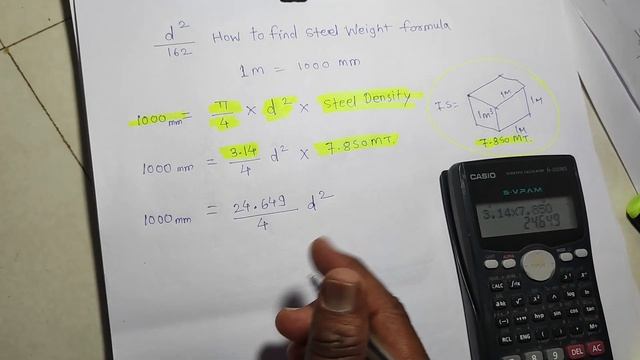 d² / 162 How to find Steel Weight formula
1m = 1000 mm
1000 mm = π/4 × d² × Steel Density
IS = 1m³ 1m 1m 1m
7.850 MT.
1000 mm = 3.14/4 d² × 7.850 MT.
1000 mm = 24.649/4 d²
CASIO
S-V.P.A.M.
3.14×7.850
24.649
CALC
hyp sin cos tan
RCL ENG ( ) , M+
8 9 DEL AC